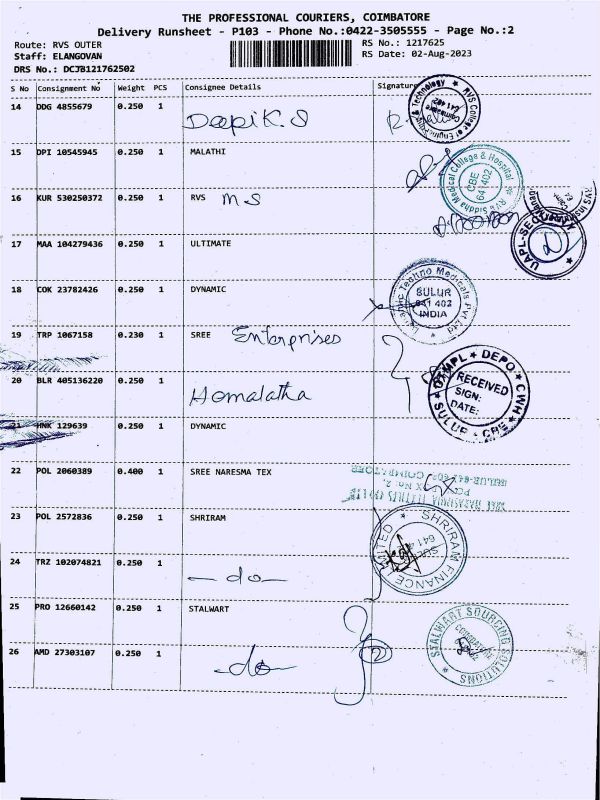 THE PROFESSIONAL COURIERS, COIMBATORE
Delivery Runsheet - P103 - Phone No.:0422-3505555 - Page No.:2
Route: RVS OUTER
RS No.: 1217625
Staff: ELANGOVAN
RS Date: 02-Aug-2023
DRS No.: DCJB121762502
S No Consignment No Weight PCS Consignee Details Signature
14 DDG 4855679 0.250 1 Deepik. S
15 DPI 10545945 0.250 1 MALATHI
16 KUR 530250372 0.250 1 RVS MS
17 MAA 104279436 0.250 1 ULTIMATE
18 COK 23782426 0.250 1 DYNAMIC
19 TRP 1067158 0.230 1 SREE Enterprises
20 BLR 405136220 0.250 1 Homalatha
21 HNK 129639 0.250 1 DYNAMIC
22 POL 2060389 0.400 1 SREE NARESMA TEX
23 POL 2572836 0.250 1 SHRIRAM
24 TRZ 102074821 0.250 1 - do -
25 PRO 12660142 0.250 1 STALWART
26 AMD 27303107 0.250 1 - do -
RVS College of Technology
Coimbatore
641 402
RVS Siddha Medical College & Hospital
CBE
641 402
UAPL-SE
Techno Medicals Pvt Ltd
SULUR
641 402
INDIA
DEPO CWH
RECEIVED
SIGN:
DATE:
SULUR - CBE
SHRIRAM FINANCE LIMITED
STALWART SOURCING SOLUTIONS
COIMBATORE